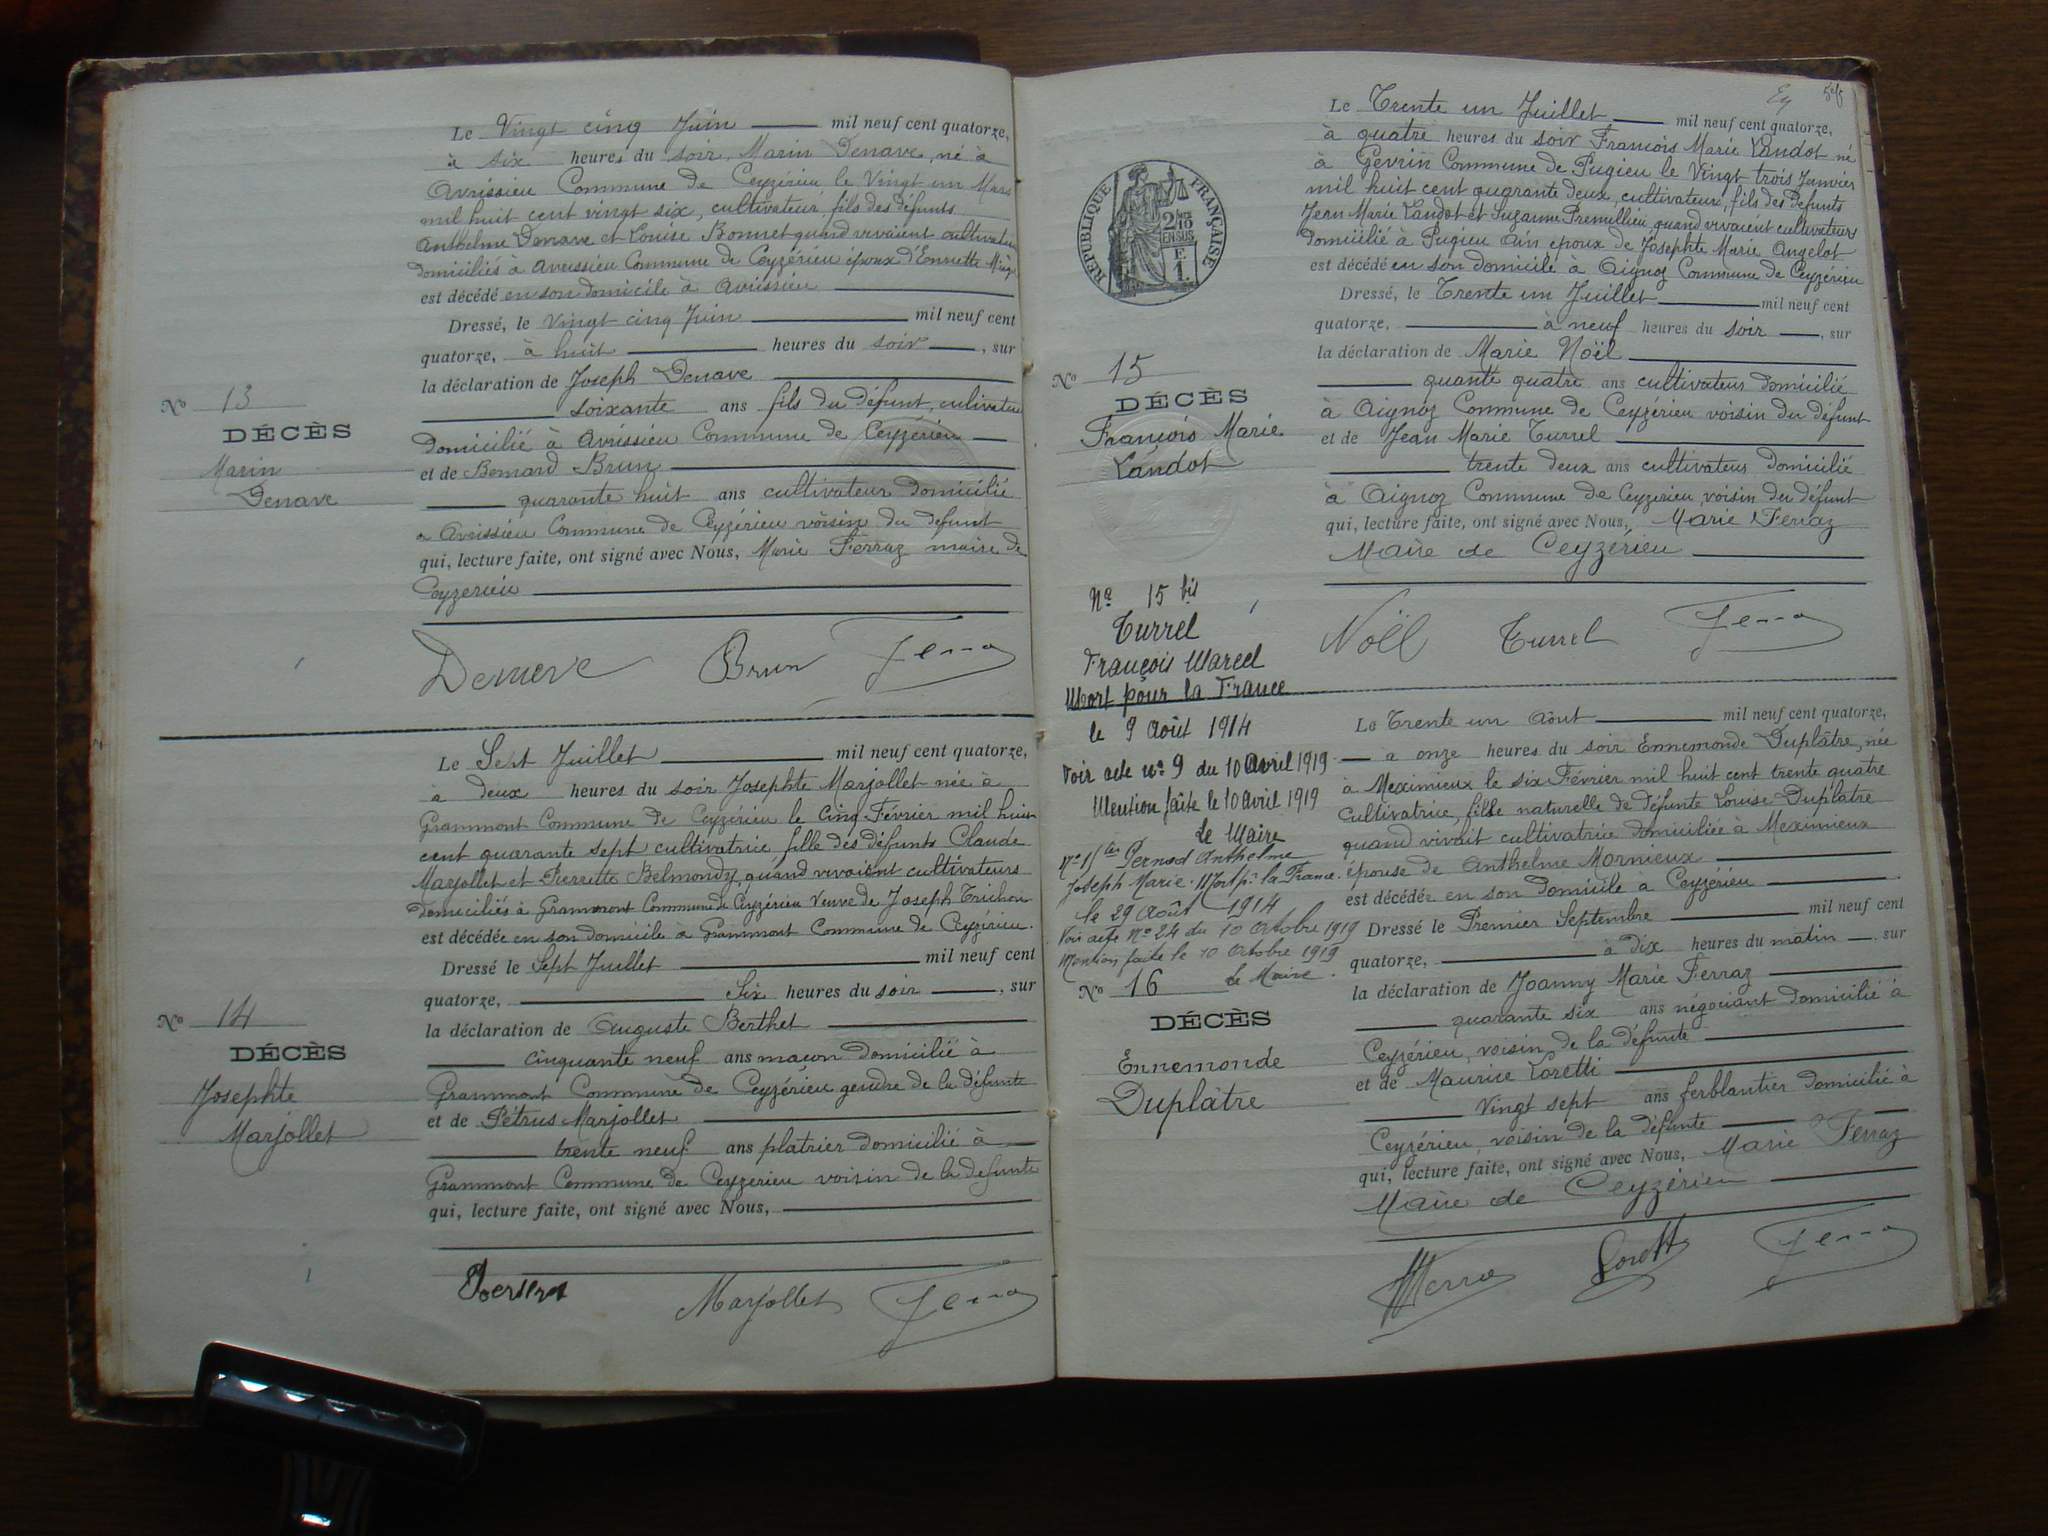 Le Vingt cinq Juin mil neuf cent quatorze,
à six heures du soir, Marin Denave, né à
Avrissieu Commune de Ceyzérieu le Vingt un Mars
mil huit cent vingt six, cultivateur, fils des défunts
Anthelme Denave et Louise Bonnet quand vivaient cultivateurs
domiciliés à Avrissieu Commune de Ceyzérieu époux d'Ennette
est décédé en son domicile à Avrissieu
Dressé, le vingt cinq Juin mil neuf cent
quatorze, à huit heures du soir, sur
la déclaration de Joseph Denave
soixante ans fils du défunt, cultivateur
Domicilié à Avrissieu Commune de Ceyzérieu
et de Bernard Brun
quarante huit ans cultivateur domicilié
a Avrissieu Commune de Ceyzérieu voisin du défunt
qui, lecture faite, ont signé avec Nous, Marie Ferraz maire de
Ceyzerieu
No 13
DÉCÈS
Marin
Denave
Brun
Le Sept Juillet mil neuf cent quatorze,
à deux heures du soir Josephte Marjollet née à
Grammont Commune de Ceyzérieu le cinq Février mil huit
cent quarante sept cultivatrice, fille des défunts Claude
Marjollet et Pierrette Belmondy, quand vivaient cultivateurs
domiciliés à Grammont Commune de Ceyzérieu Veuve de Joseph Trichon
est décédée en son domicile a Grammont Commune de Ceyzérieu.
Dressé le Sept Juillet mil neuf cent
quatorze, Six heures du soir, sur
la déclaration de Auguste Berthet
cinquante neuf ans maçon domicilié à
Grammont Commune de Ceyzérieu gendre de la défunte
et de Pétrus Marjollet
trente neuf ans platrier domicilié à
Grammont Commune de Ceyzerieu voisin de la defunte
qui, lecture faite, ont signé avec Nous,
No 14
DÉCÈS
Josephte
Marjollet
Marjollet
RÉPUBLIQUE FRANÇAISE
2/10
EN SUS
F.
1.
Le Trente un Juillet mil neuf cent quatorze,
à quatre heures du soir François Marie Landot né
à Gevrin Commune de Pugieu le Vingt trois Janvier
mil huit cent quarante deux, cultivateur, fils des défunts
Jean Marie Landot et Suzanne Premillieu quand vivaient cultivateurs
domicilié à Pugieu Ain époux de Josephte Marie Angelot
est décédé en son domicile à Aignoz Commune de Ceyzérieu
Dressé, le Trente un Juillet mil neuf cent
quatorze, à neuf heures du soir, sur
la déclaration de Marie Noël
quante quatre ans cultivateur domicilié
à Aignoz Commune de Ceyzérieu voisin du défunt
et de Jean Marie Turrel
trente deux ans cultivateur Domicilié
à Aignoz Commune de Ceyzerieu, voisin du défunt
qui, lecture faite, ont signé avec Nous, Marie Ferraz
Maire de Ceyzérieu
No 15
DÉCÈS
François Marie
Landot
Noël Turrel
No 15 bis
Turrel
François Marcel
Mort pour la France
le 9 Août 1914
Voir acte no 9 du 10 Avril 1919
Mention faite le 10 Avril 1919
Le Maire
No 15 ter Pernod Anthelme
Joseph Marie. Mort pr la France.
le 29 Août 1914
Voir acte No 24 du 10 Octobre 1919
Mention faite le 10 Octobre 1919
Le Maire.
Le Trente un Août mil neuf cent quatorze,
a onze heures du soir Ennemonde Duplâtre, née
à Meximieux le six Février mil huit cent trente quatre
Cultivatrice, fille naturelle de défunte Louise Duplâtre
quand vivait cultivatrice domiciliée à Meximieux
épouse de Anthelme Mornieux
est décédée en son domicile a Ceyzérieu
Dressé le Premier Septembre mil neuf cent
quatorze, à Dix heures du matin, sur
la déclaration de Joanny Marie Ferraz
quarante six ans négociant domicilié à
Ceyzérieu, voisin de la défunte
et de Maurice Loretti
Vingt sept ans ferblantier domicilié à
Ceyzérieu, voisin de la défunte
qui, lecture faite, ont signé avec Nous, Marie Ferraz
Maire de Ceyzérieu
No 16
DÉCÈS
Ennemonde
Duplâtre